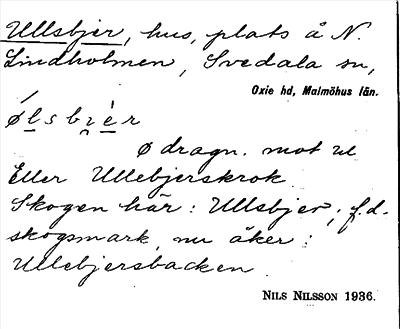 Ullsbjer, hus, plats å N.
Lindholmen, Svedala sn,
Oxie hd, Malmöhus län.
ø l s b i̯ è r
ø dragn. mot œ
Eller Ullebjerskrok
Skogen här: Ullsbjer; f.d.
skogsmark, nu åker:
Ullebjersbacken
NILS NILSSON 1936.